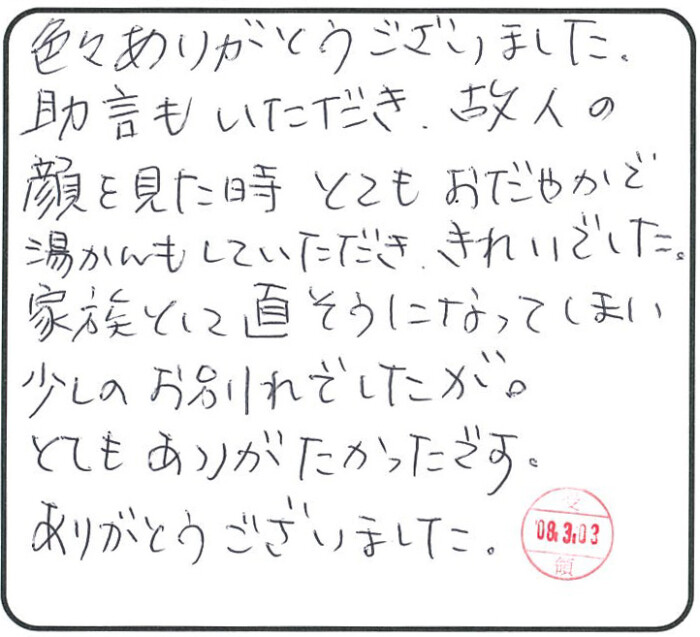 色々ありがとうございました。
助言もいただき、故人の
顔を見た時 とても おだやかで
湯かんもしていただき、きれいでした。
家族として直そうになってしまい
少しの お別れでしたが。
とても ありがたかったです。
ありがとうございました。
受
'08.3.03
領